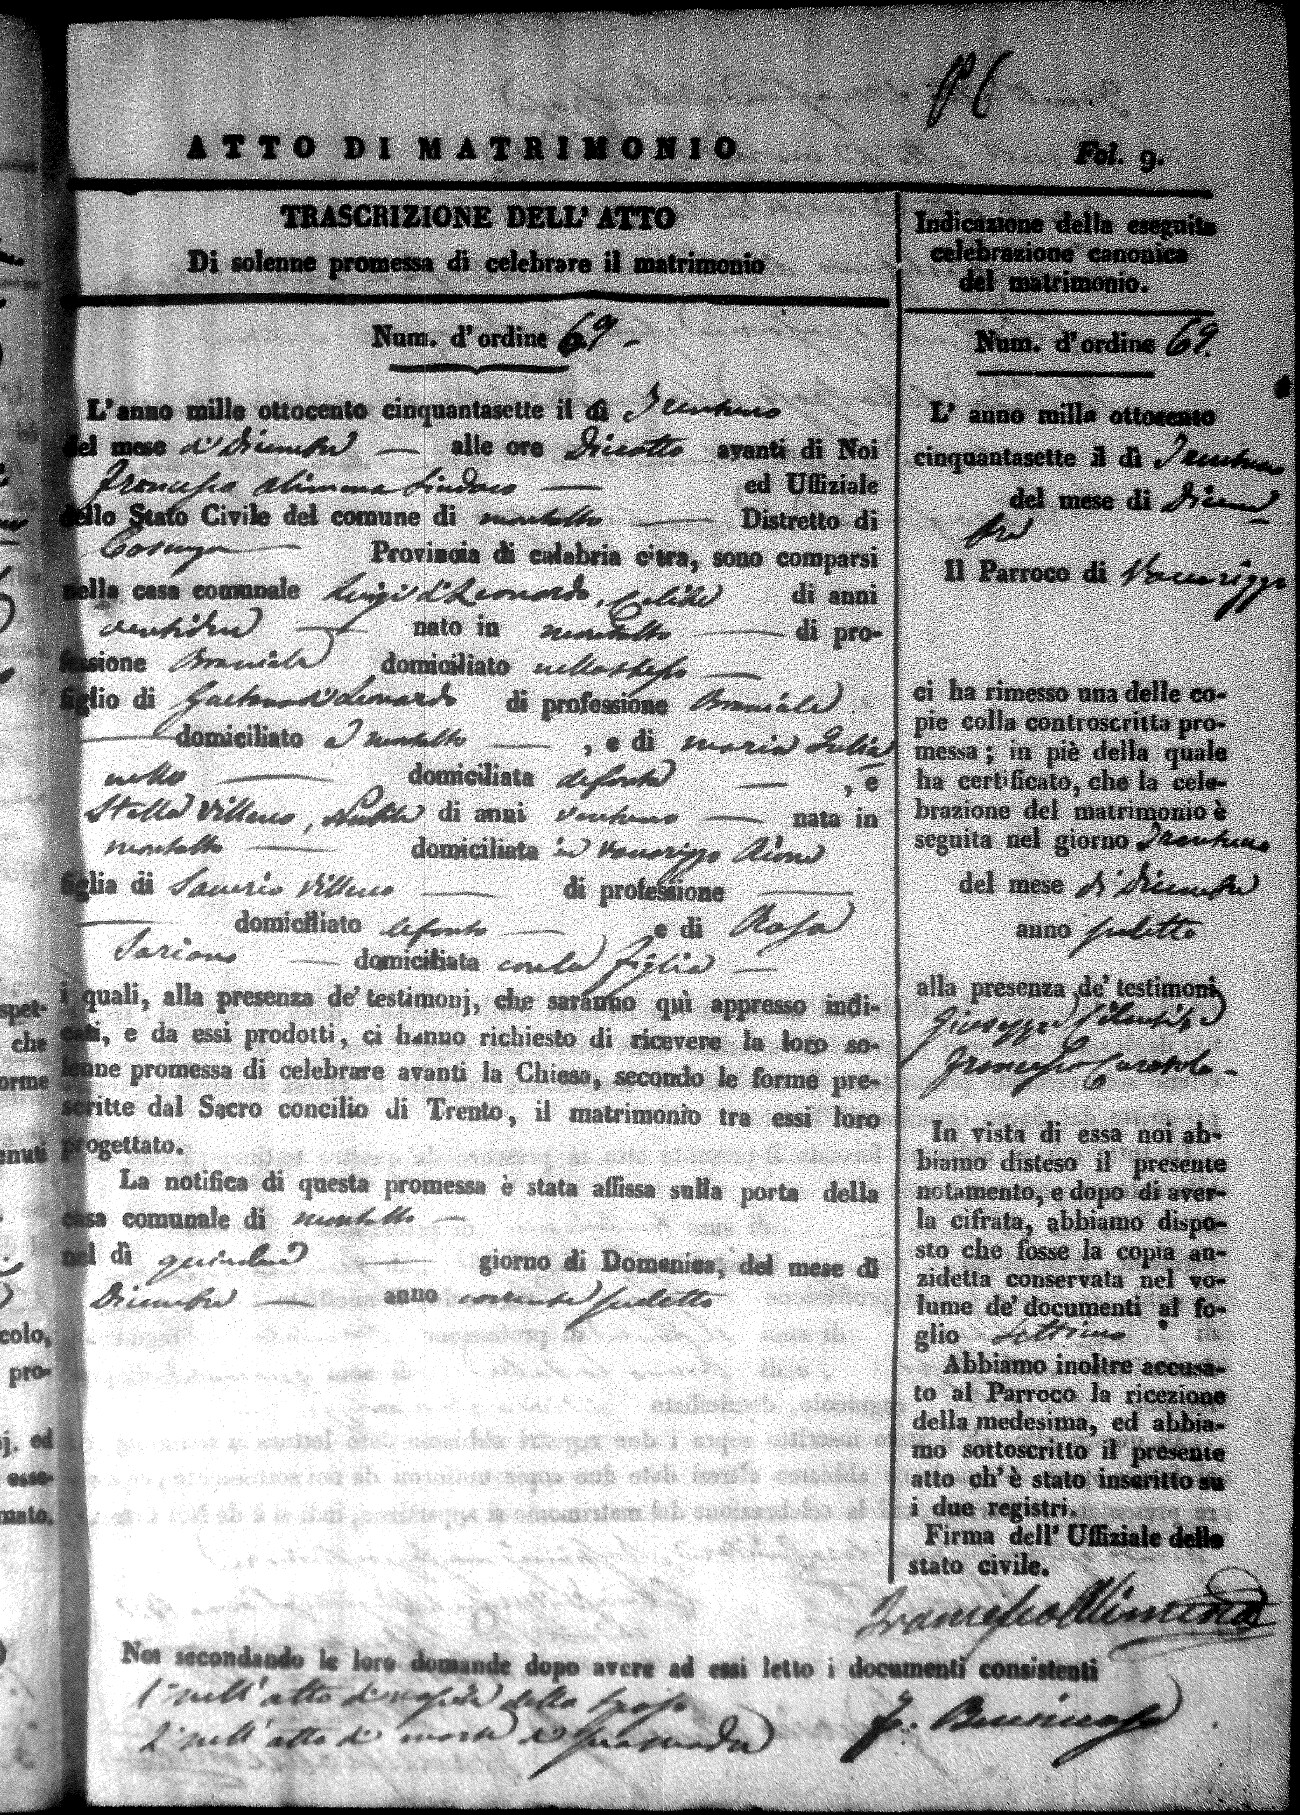 ATTO DI MATRIMONIO
Fol. 9.
TRASCRIZIONE DELL' ATTO
Di solenne promessa di celebrare il matrimonio
Num. d'ordine 69
L'anno mille ottocento cinquantasette il dì Trentuno
del mese di Dicembre alle ore Diciotto avanti di Noi
Francesco Alimena Sindaco ed Uffiziale
dello Stato Civile del comune di Montalto Distretto di
Cosenza Provincia di calabria citra, sono comparsi
nella casa comunale Luigi d'Leonardo, Celibe di anni
ventidue nato in Montalto di pro-
fessione Bracciale domiciliato nello stesso
figlio di Gaetano d'Leonardo di professione Bracciale
domiciliato a Montalto , e di Maria
domiciliata defonta , e
Stella Villano, Nubile di anni ventuno nata in
Montalto domiciliata in Vaccarizzo
figlia di Saverio Villano di professione
domiciliato defonto e di Rosa
domiciliata con la figlia
i quali, alla presenza de' testimonj, che saranno quì appresso indi-
cati, e da essi prodotti, ci hanno richiesto di ricevere la loro so-
lenne promessa di celebrare avanti la Chiesa, secondo le forme pre-
scritte dal Sacro concilio di Trento, il matrimonio tra essi loro
progettato.
La notifica di questa promessa è stata affissa sulla porta della
casa comunale di Montalto
nel dì giorno di Domenica, del mese di
Dicembre anno corrente suddetto
Indicazione della eseguita
celebrazione canonica
del matrimonio.
Num. d'ordine 69.
L' anno mille ottocento
cinquantasette il dì Trentuno
del mese di Dicem
bre
Il Parroco di Vaccarizzo
ci ha rimesso una delle co-
pie colla controscritta pro-
messa; in piè della quale
ha certificato, che la cele-
brazione del matrimonio è
seguita nel giorno Trentuno
del mese di Dicembre
anno suddetto
alla presenza de' testimoni
Giuseppe
Francesco
In vista di essa noi ab-
biamo disteso il presente
notamento, e dopo di aver-
la cifrata, abbiamo dispo-
sto che fosse la copia an-
zidetta conservata nel vo-
lume de' documenti al fo-
glio
Abbiamo inoltre accusa-
to al Parroco la ricezione
della medesima, ed abbia-
mo sottoscritto il presente
atto ch'è stato inscritto su
i due registri.
Firma dell' Uffiziale dello
stato civile.
Francesco Alimena
Noi secondando le loro domande dopo avere ad essi letto i documenti consistenti
1° nell'atto di nascita dello sposo
2° nell'atto di morte di sua madre